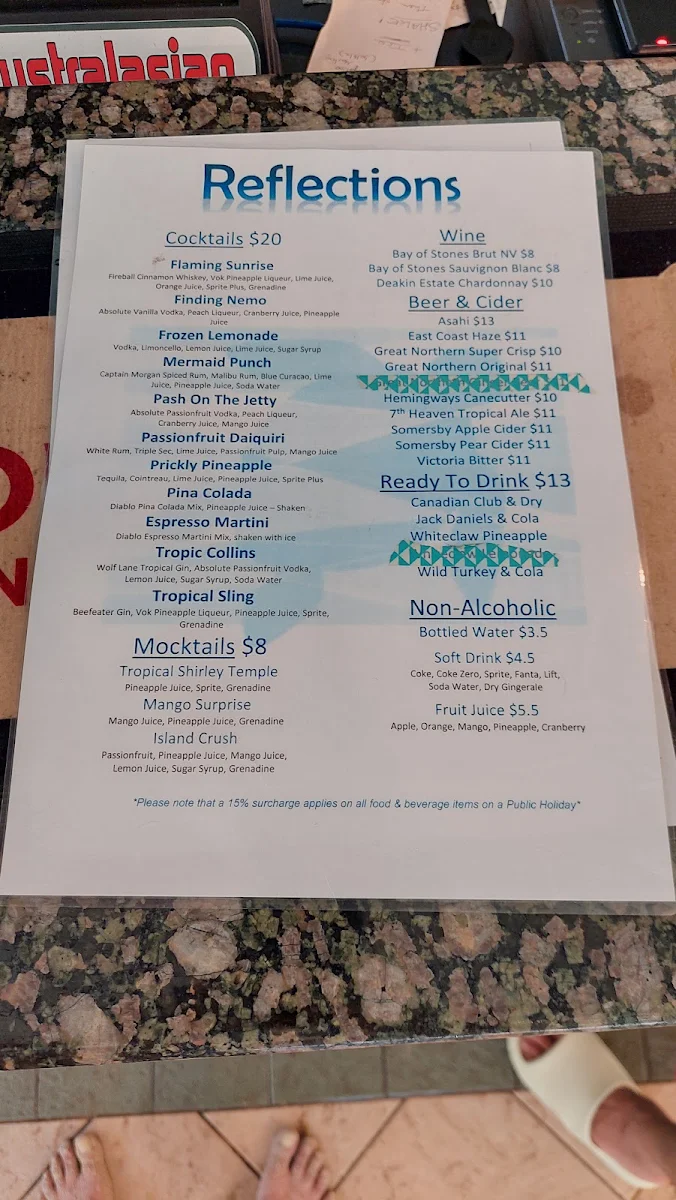 ustralasian
Reflections
Cocktails $20
Flaming Sunrise
Fireball Cinnamon Whiskey, Vok Pineapple Liqueur, Lime Juice,
Orange Juice, Sprite Plus, Grenadine
Finding Nemo
Absolute Vanilla Vodka, Peach Liqueur, Cranberry Juice, Pineapple
Juice
Frozen Lemonade
Vodka, Limoncello, Lemon Juice, Lime Juice, Sugar Syrup
Mermaid Punch
Captain Morgan Spiced Rum, Malibu Rum, Blue Curacao, Lime
Juice, Pineapple Juice, Soda Water
Pash On The Jetty
Absolute Passionfruit Vodka, Peach Liqueur,
Cranberry Juice, Mango Juice
Passionfruit Daiquiri
White Rum, Triple Sec, Lime Juice, Passionfruit Pulp, Mango Juice
Prickly Pineapple
Tequila, Cointreau, Lime Juice, Pineapple Juice, Sprite Plus
Pina Colada
Diablo Pina Colada Mix, Pineapple Juice – Shaken
Espresso Martini
Diablo Espresso Martini Mix, shaken with ice
Tropic Collins
Wolf Lane Tropical Gin, Absolute Passionfruit Vodka,
Lemon Juice, Sugar Syrup, Soda Water
Tropical Sling
Beefeater Gin, Vok Pineapple Liqueur, Pineapple Juice, Sprite,
Grenadine
Mocktails $8
Tropical Shirley Temple
Pineapple Juice, Sprite, Grenadine
Mango Surprise
Mango Juice, Pineapple Juice, Grenadine
Island Crush
Passionfruit, Pineapple Juice, Mango Juice,
Lemon Juice, Sugar Syrup, Grenadine
Wine
Bay of Stones Brut NV $8
Bay of Stones Sauvignon Blanc $8
Deakin Estate Chardonnay $10
Beer & Cider
Asahi $13
East Coast Haze $11
Great Northern Super Crisp $10
Great Northern Original $11
Hemingways Canecutter $10
7th Heaven Tropical Ale $11
Somersby Apple Cider $11
Somersby Pear Cider $11
Victoria Bitter $11
Ready To Drink $13
Canadian Club & Dry
Jack Daniels & Cola
Whiteclaw Pineapple
Wild Turkey & Cola
Non-Alcoholic
Bottled Water $3.5
Soft Drink $4.5
Coke, Coke Zero, Sprite, Fanta, Lift,
Soda Water, Dry Gingerale
Fruit Juice $5.5
Apple, Orange, Mango, Pineapple, Cranberry
*Please note that a 15% surcharge applies on all food & beverage items on a Public Holiday*